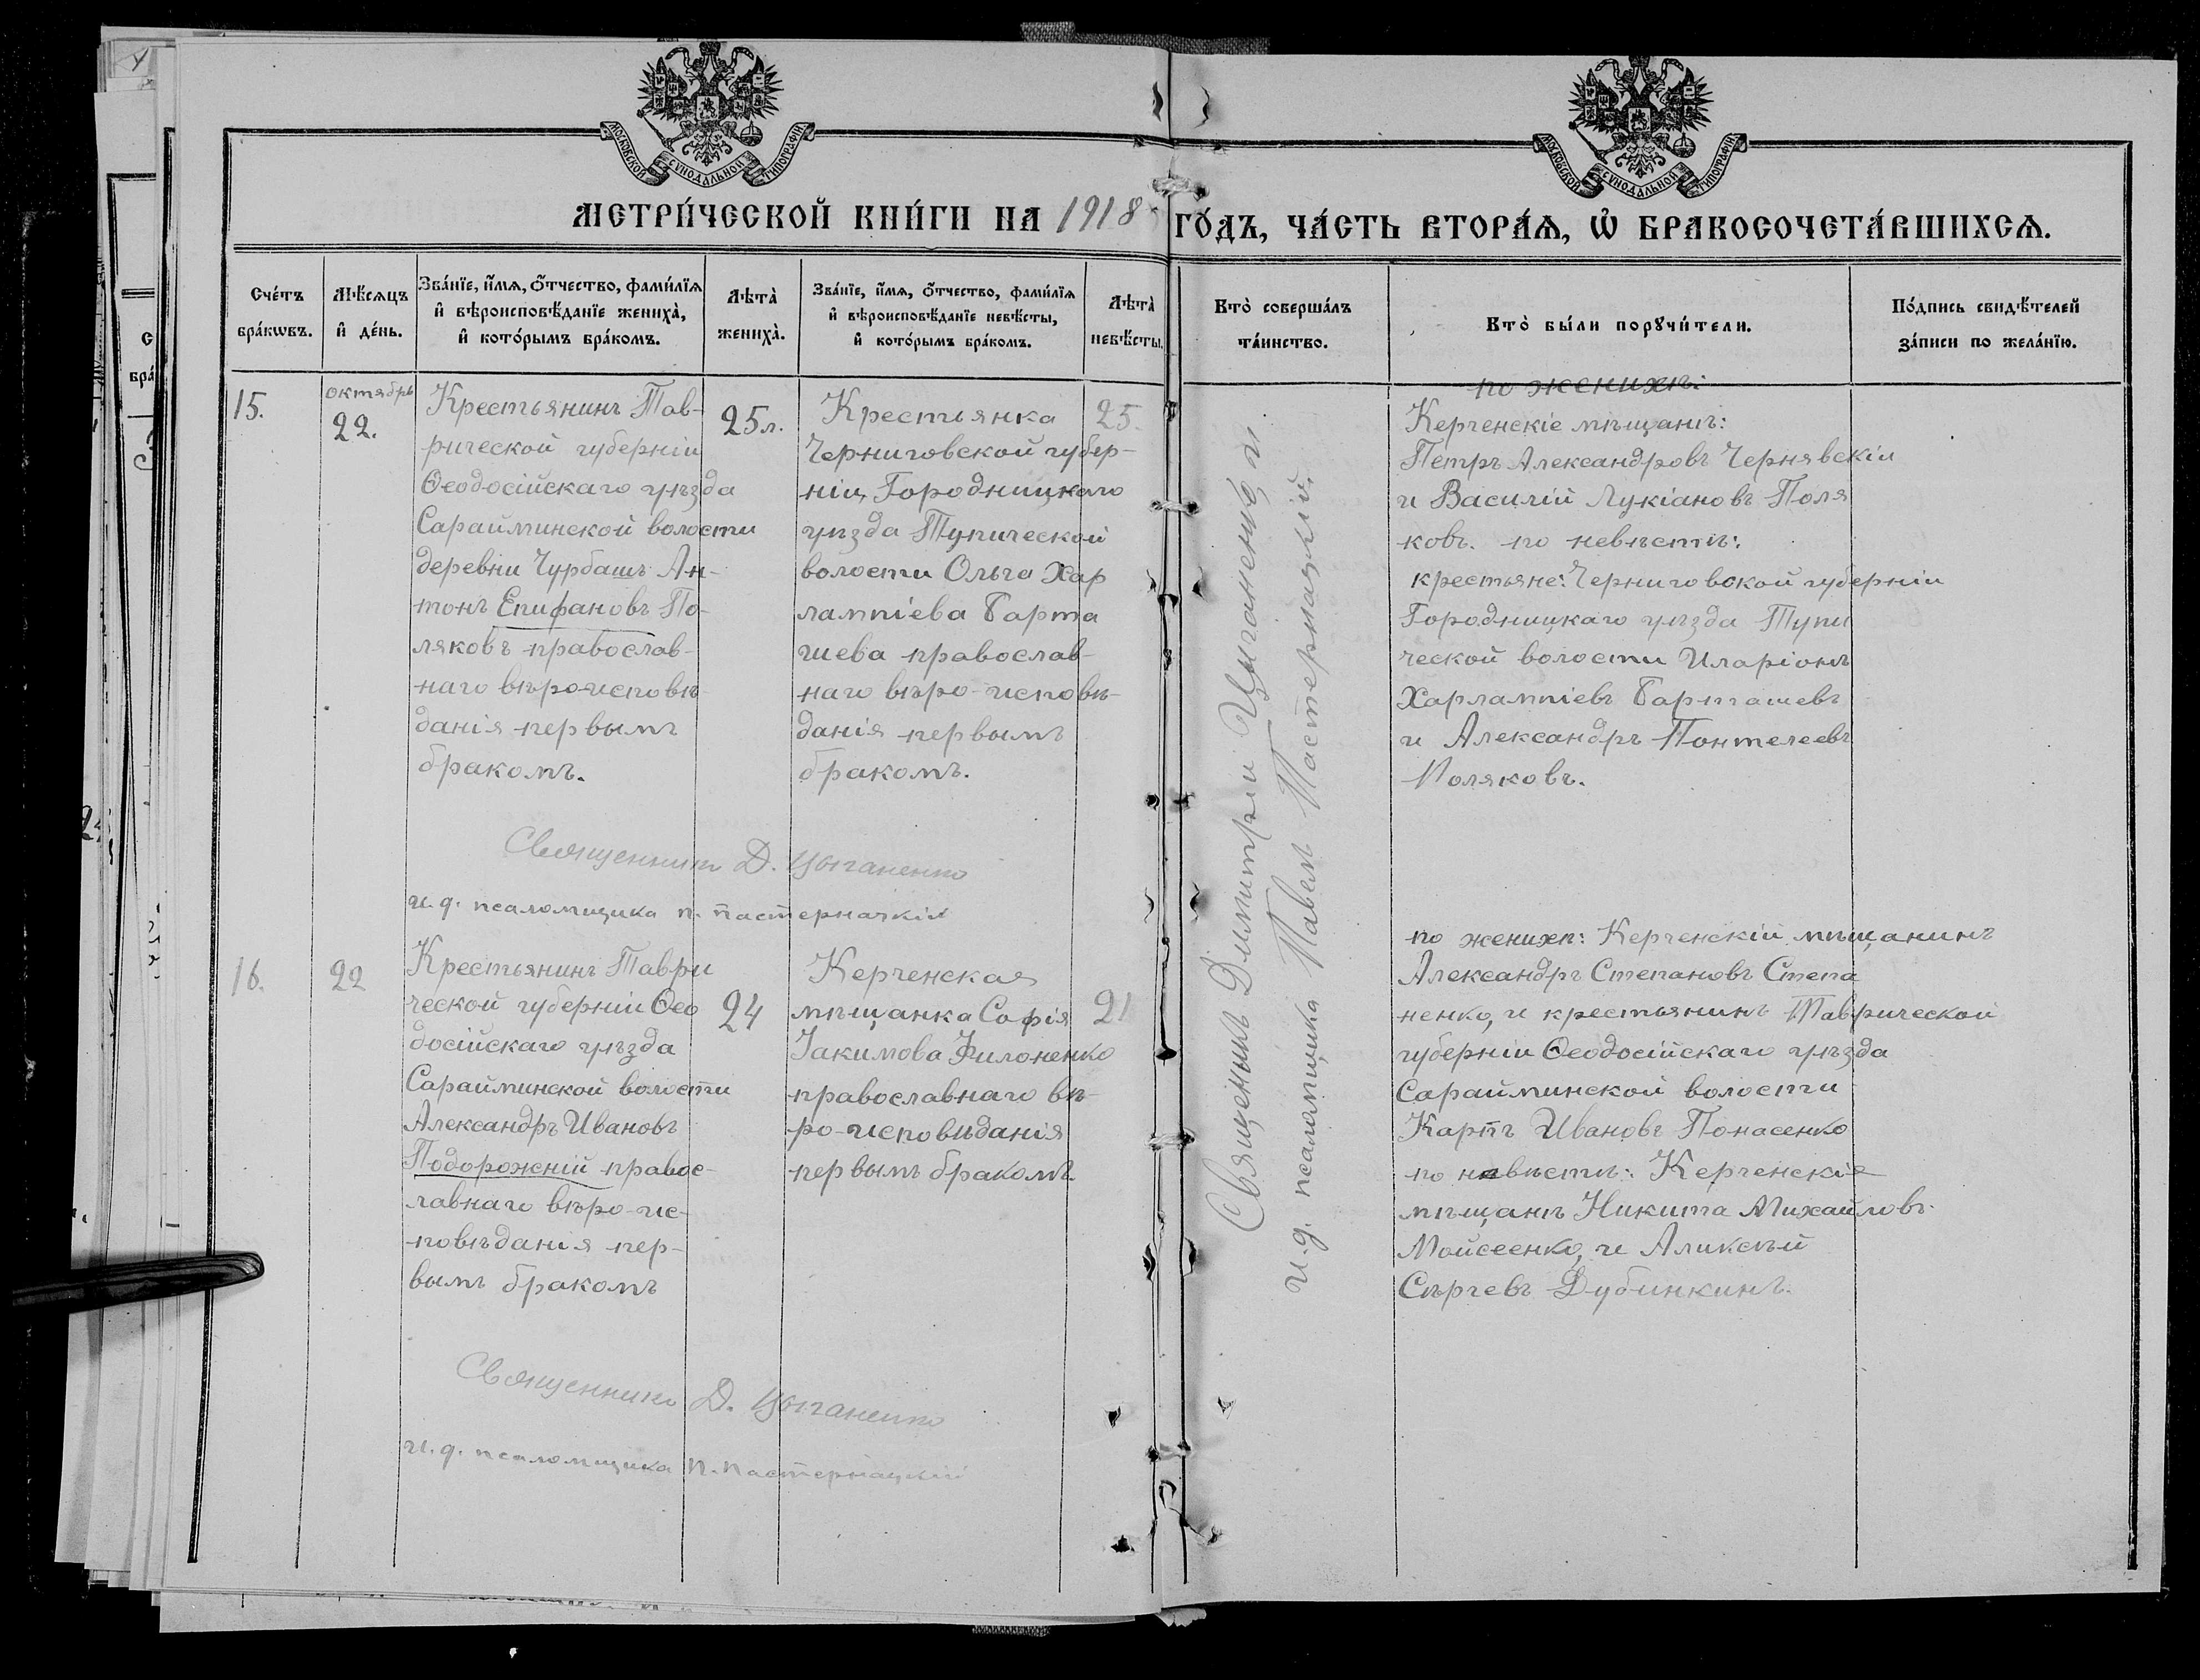 МОСКОВСКОЙ СѴНОДАЛЬНОЙ ТИПОГРАФІИ
МОСКОВСКОЙ СѴНОДАЛЬНОЙ ТИПОГРАФІИ
МЕТРИ́ЧЕСКОЙ КНИ́ГИ НА 1918 ГО́ДЪ, ЧА́СТЬ ВТОРА́Я, Ѡ҆ БРАКОСОЧЕТА́ВШИХСЯ.
Сче́тъ бра́кѡвъ.
Мѣ́сяцъ и҆ де́нь.
Зва́нїе, и҆́мя, ѻ҆́тчество, фами́лїя
и҆ вѣроисповѣ́данїе жениха̀,
и҆ кото́рымъ бра́комъ.
Лѣта̀ жениха̀.
Зва́нїе, и҆́мя, ѻ҆́тчество, фами́лїя
и҆ вѣроисповѣ́данїе невѣ́сты,
и҆ кото́рымъ бра́комъ.
Лѣта̀ невѣ́сты.
Кто̀ соверша́лъ та́инство.
Кто̀ бы́ли порꙋчи́тели.
По́дпись свидѣ́телей за́писи по жела́нїю.
15.
октябрь
22.
Крестьянинъ Тав-
рической губерніи
Ѳеодосійскаго уѣзда
Сарайминской волости
деревни Чурбашъ Ан-
тонъ Епифановъ По-
ляковъ православ-
наго вѣро-исповѣ-
данія первымъ
бракомъ.
25л.
Крестьянка
Черниговской губер-
ніи, Городницкаго
уѣзда Тупической
волости Ольга Хар
лампіева Барта
шева православ-
наго вѣро-исповѣ-
данія первымъ
бракомъ.
25.
Священникъ Димитрій Цыганенко, и
и.д. псаломщика Павелъ Пастернацкій.
по женихѣ:
Керченскіе мѣщанъ:
Петръ Александровъ Чернявскій
и Василій Лукіановъ Поля
ковъ. по невѣстѣ:
крестьяне: Черниговской губерніи
Городницкаго уѣзда Тупи
ческой волости Иларіонъ
Харлампіевъ Барташевъ
и Александръ Понтелеевъ
Поляковъ.
Священникъ Д. Цыганенко
и.д. псаломщика П. Пастернацкій
16.
22
Крестьянинъ Таври
ческой губерніи Ѳео
досійскаго уѣзда
Сарайминской волости
Александръ Ивановъ
Подорожній правос-
лавнаго вѣро-ис-
повѣданія пер-
вымъ бракомъ
24
Керченская
мѣщанка Софія
Іакимова Филоненко
православнаго вѣ-
ро-исповѣданія
первымъ бракомъ.
21
по женихѣ: Керченскій мѣщанинъ
Александръ Степановъ Степа
ненко, и крестьянинъ Таврической
губерніи Ѳеодосійскаго уѣзда
Сарайминской волости
Карпъ Ивановъ Понасенко
по невѣстѣ: Керченскіе
мѣщанъ Никита Михайловъ
Мойсеенко, и Аликсѣй
Сѣргевъ Дубинкинъ.
Священникъ Д. Цыганенко
и.д. псаломщика П. Пастернацкій